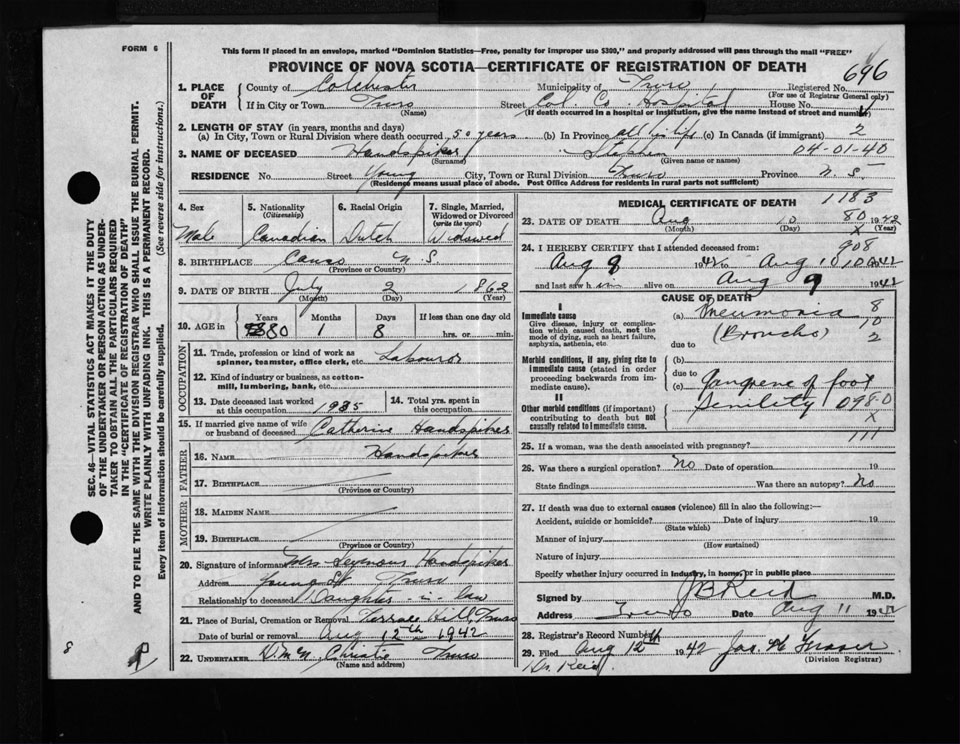 FORM 6
This form if placed in an envelope, marked "Dominion Statistics—Free, penalty for improper use $300," and properly addressed will pass through the mail "FREE"
PROVINCE OF NOVA SCOTIA—CERTIFICATE OF REGISTRATION OF DEATH
696
1. PLACE OF DEATH
County of Colchester Municipality of Truro Registered No.
(For use of Registrar General only)
If in City or Town Truro Street Col. Co. Hospital House No.
(Name) (If death occurred in a hospital or institution, give the name instead of street and number)
2. LENGTH OF STAY (in years, months and days)
(a) In City, Town or Rural Division where death occurred 50 years (b) In Province all his life (c) In Canada (if immigrant) 2
3. NAME OF DECEASED Handspiker Stephen 04-01-40
(Surname) (Given name or names)
RESIDENCE No. Street Young City, Town or Rural Division Truro Province N. S.
(Residence means usual place of abode. Post Office Address for residents in rural parts not sufficient)
4. Sex
Male
5. Nationality
(Citizenship)
Canadian
6. Racial Origin
Dutch
7. Single, Married, Widowed or Divorced
(write the word)
Widowed
8. BIRTHPLACE Canso N.S.
(Province or Country)
9. DATE OF BIRTH July 2 1862
(Month) (Day) (Year)
10. AGE in Years Months Days If less than one day old
80 1 8 hrs. or min.
OCCUPATION
11. Trade, profession or kind of work as spinner, teamster, office clerk, etc. Labourer
12. Kind of industry or business, as cotton-mill, lumbering, bank, etc.
13. Date deceased last worked at this occupation 1935 14. Total yrs. spent in this occupation
15. If married give name of wife or husband of deceased Catherine Handspiker
FATHER
16. NAME Handspiker
17. BIRTHPLACE
(Province or Country)
MOTHER
18. MAIDEN NAME
19. BIRTHPLACE
(Province or Country)
20. Signature of informant Mrs Handspiker
Address Young St Truro
Relationship to deceased Daughter-in-law
21. Place of Burial, Cremation or Removal Hill, Truro
Date of burial or removal Aug 12th 1942
22. UNDERTAKER Christie Truro
(Name and address)
MEDICAL CERTIFICATE OF DEATH
1183
23. DATE OF DEATH Aug 10 80 1942
(Month) (Day) X (Year)
24. I HEREBY CERTIFY that I attended deceased from: 908
Aug 9 1942 to Aug 10 1942
and last saw him alive on Aug 9 1942
CAUSE OF DEATH
I
Immediate cause
Give disease, injury or complication which caused death, not the mode of dying, such as heart failure, asphyxia, asthenia, etc.
(a) Pneumonia 8
(Broncho) 10
due to 2
Morbid conditions, if any, giving rise to immediate cause (stated in order proceeding backwards from immediate cause).
(b)
due to
(c) Gangrene of foot
II
Other morbid conditions (if important) contributing to death but not causally related to immediate cause.
Senility 0980
X
111
25. If a woman, was the death associated with pregnancy?
26. Was there a surgical operation? No Date of operation 19
State findings Was there an autopsy? No
27. If death was due to external causes (violence) fill in also the following:—
Accident, suicide or homicide? Date of injury 19
(State which)
Manner of injury
(How sustained)
Nature of injury
Specify whether injury occurred in industry, in home, or in public place
Signed by J B Reid M.D.
Address Truro Date Aug 11 1942
28. Registrar's Record Number
29. Filed Aug 12th 1942 Jas. H Fraser
(Division Registrar)
Dr. Reid
SEC. 46—VITAL STATISTICS ACT MAKES IT THE DUTY
OF THE UNDERTAKER OR PERSON ACTING AS UNDER-
TAKER TO OBTAIN ALL THE PARTICULARS REQUIRED
IN THE "CERTIFICATE OF REGISTRATION OF DEATH"
AND TO FILE THE SAME WITH THE DIVISION REGISTRAR WHO SHALL ISSUE THE BURIAL PERMIT.
WRITE PLAINLY WITH UNFADING INK. THIS IS A PERMANENT RECORD.
Every item of information should be carefully supplied. (See reverse side for instructions.)
8